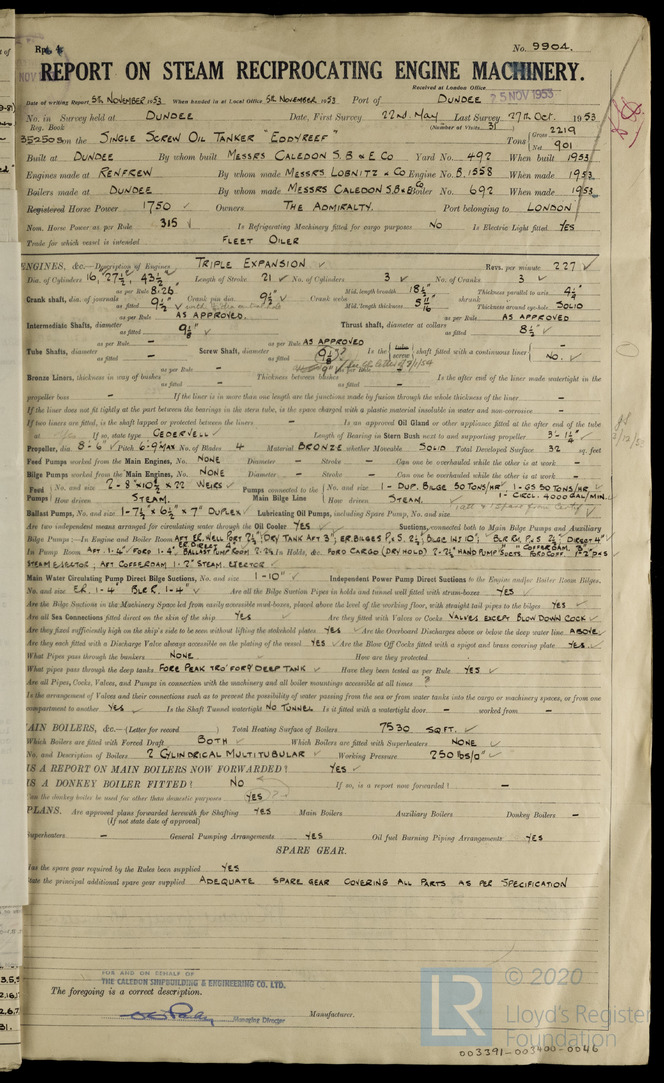 Rpt. 4. No. 9904.
REPORT ON STEAM RECIPROCATING ENGINE MACHINERY.
Received at London Office 25 NOV 1953
Date of writing Report 5th NOVEMBER 1953 When handed in at Local Office 5th NOVEMBER 1953 Port of DUNDEE
No. in Survey held at DUNDEE Date, First Survey 22nd May Last Survey 27th Oct. 1953
Reg. Book (Number of Visits 31)
35250 S on the SINGLE SCREW OIL TANKER "EDDYREEF" Tons { Gross 2219 Net 901
Built at DUNDEE By whom built MESSRS CALEDON S.B & E Co Yard No. 492 When built 1953
Engines made at RENFREW By whom made MESSRS LOBNITZ & Co Engine No. B.1558 When made 1953
Boilers made at DUNDEE By whom made MESSRS CALEDON S.B & E Co Boiler No. 692 When made 1953
Registered Horse Power 1750 Owners THE ADMIRALTY. Port belonging to LONDON
Nom. Horse Power as per Rule 315 Is Refrigerating Machinery fitted for cargo purposes NO Is Electric Light fitted YES
Trade for which vessel is intended FLEET OILER
ENGINES, &c.—Description of Engines TRIPLE EXPANSION Revs. per minute 227
Dia. of Cylinders 16", 27½", 43½" Length of Stroke 21 No. of Cylinders 3 No. of Cranks 3
Crank shaft, dia. of journals as per Rule 8.26 as fitted 9½ Crank pin dia. 9½" Crank webs Mid. length breadth 18¼" Mid. length thickness 5 11/16 shrunk Thickness parallel to axis 4¾" Thickness around eye-hole SOLID
Intermediate Shafts, diameter as per Rule AS APPROVED. as fitted 9⅛" Thrust shaft, diameter at collars as per Rule AS APPROVED as fitted 8½"
Tube Shafts, diameter as per Rule — as fitted — Screw Shaft, diameter as per Rule AS APPROVED as fitted 9⅛" Is the { tube screw } shaft fitted with a continuous liner { NO.
Bronze Liners, thickness in way of bushes as per Rule — as fitted — Thickness between bushes as per Rule — as fitted — Is the after end of the liner made watertight in the
propeller boss — If the liner is in more than one length are the junctions made by fusion through the whole thickness of the liner —
If the liner does not fit tightly at the part between the bearings in the stern tube, is the space charged with a plastic material insoluble in water and non-corrosive —
If two liners are fitted, is the shaft lapped or protected between the liners — Is an approved Oil Gland or other appliance fitted at the after end of the tube
If so, state type CEDERVALL Length of Bearing in Stern Bush next to and supporting propeller 3'-1¼"
Propeller, dia. 8'-6" Pitch 6'-9" No. of Blades 4 Material BRONZE whether Moveable SOLID Total Developed Surface 32 sq. feet
Feed Pumps worked from the Main Engines, No. NONE Diameter — Stroke — Can one be overhauled while the other is at work —
Bilge Pumps worked from the Main Engines, No. NONE Diameter — Stroke — Can one be overhauled while the other is at work —
Feed Pumps { No. and size 2-8"×10½"×22 WEIRS How driven STEAM. Pumps connected to the Main Bilge Line { No. and size 1-DUP. BILGE 50 TONS/HR 1-GS 50 TONS/HR 1-CIRC. 4000 GAL/MIN. How driven STEAM.
Ballast Pumps, No. and size 1-7½"×6½"×7" DUPLEX Lubricating Oil Pumps, including Spare Pump, No. and size
Are two independent means arranged for circulating water through the Oil Cooler YES Suctions, connected both to Main Bilge Pumps and Auxiliary
Bilge Pumps :—In Engine and Boiler Room AFT ER. WELL PORT 2½" DRY TANK AFT 3", ER. BILGES P&S. 2½" BLGE INJ 10" BLR RM. P&S 2½" DIRECT 4"
STEAM EJECTOR, AFT COFFERDAM 1-2" STEAM. EJECTOR
Main Water Circulating Pump Direct Bilge Suctions, No. and size 1-10" Independent Power Pump Direct Suctions to the Engine and/or Boiler Room Bilges.
No. and size E.R. 1-4" BLR R. 1-4" Are all the Bilge Suction Pipes in holds and tunnel well fitted with strum-boxes YES
Are the Bilge Suctions in the Machinery Space led from easily accessible mud-boxes, placed above the level of the working floor, with straight tail pipes to the bilges YES
Are all Sea Connections fitted direct on the skin of the ship YES Are they fitted with Valves or Cocks VALVES EXCEPT BLOW DOWN COCK
Are they fixed sufficiently high on the ship's side to be seen without lifting the stokehold plates YES Are the Overboard Discharges above or below the deep water line ABOVE
Are they each fitted with a Discharge Valve always accessible on the plating of the vessel YES Are the Blow Off Cocks fitted with a spigot and brass covering plate YES
What Pipes pass through the bunkers NONE How are they protected
What pipes pass through the deep tanks FORE PEAK TRO' FOR'D DEEP TANK Have they been tested as per Rule YES
Are all Pipes, Cocks, Valves, and Pumps in connection with the machinery and all boiler mountings accessible at all times ?
Is the arrangement of Valves and their connections such as to prevent the possibility of water passing from the sea or from water tanks into the cargo or machinery spaces, or from one
compartment to another YES Is the Shaft Tunnel watertight NO TUNNEL Is it fitted with a watertight door — worked from —
MAIN BOILERS, &c.—(Letter for record) Total Heating Surface of Boilers 7530 SQ.FT.
Which Boilers are fitted with Forced Draft BOTH Which Boilers are fitted with Superheaters NONE
No. and Description of Boilers 2 CYLINDRICAL MULTITUBULAR Working Pressure 250 lbs/□"
IS A REPORT ON MAIN BOILERS NOW FORWARDED? YES
IS A DONKEY BOILER FITTED? NO If so, is a report now forwarded? —
Can the donkey boiler be used for other than domestic purposes YES
PLANS. Are approved plans forwarded herewith for Shafting YES Main Boilers Auxiliary Boilers Donkey Boilers —
(If not state date of approval)
Superheaters — General Pumping Arrangements YES Oil fuel Burning Piping Arrangements YES
SPARE GEAR.
Has the spare gear required by the Rules been supplied YES
State the principal additional spare gear supplied ADEQUATE SPARE GEAR COVERING ALL PARTS AS PER SPECIFICATION
FOR AND ON BEHALF OF
THE CALEDON SHIPBUILDING & ENGINEERING CO. LTD.
The foregoing is a correct description.
Managing Director Manufacturer.
LR © 2020
Lloyd's Register
Foundation
003391-003400-0046